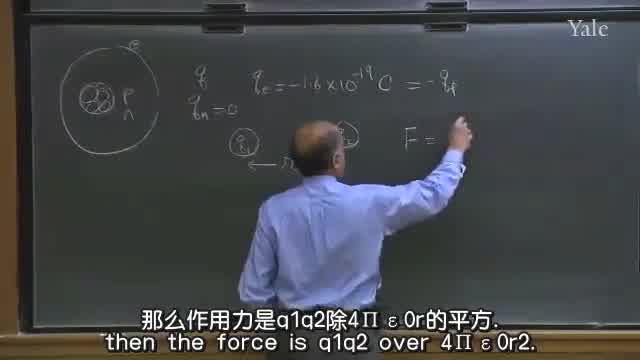 Yale
e
q
qe = -1.6 × 10^-19 C = -qp
p
n
qn = 0
q1
F =
那么作用力是q1q2除4Π ε0r的平方.
then the force is q1q2 over 4Π ε0r2.